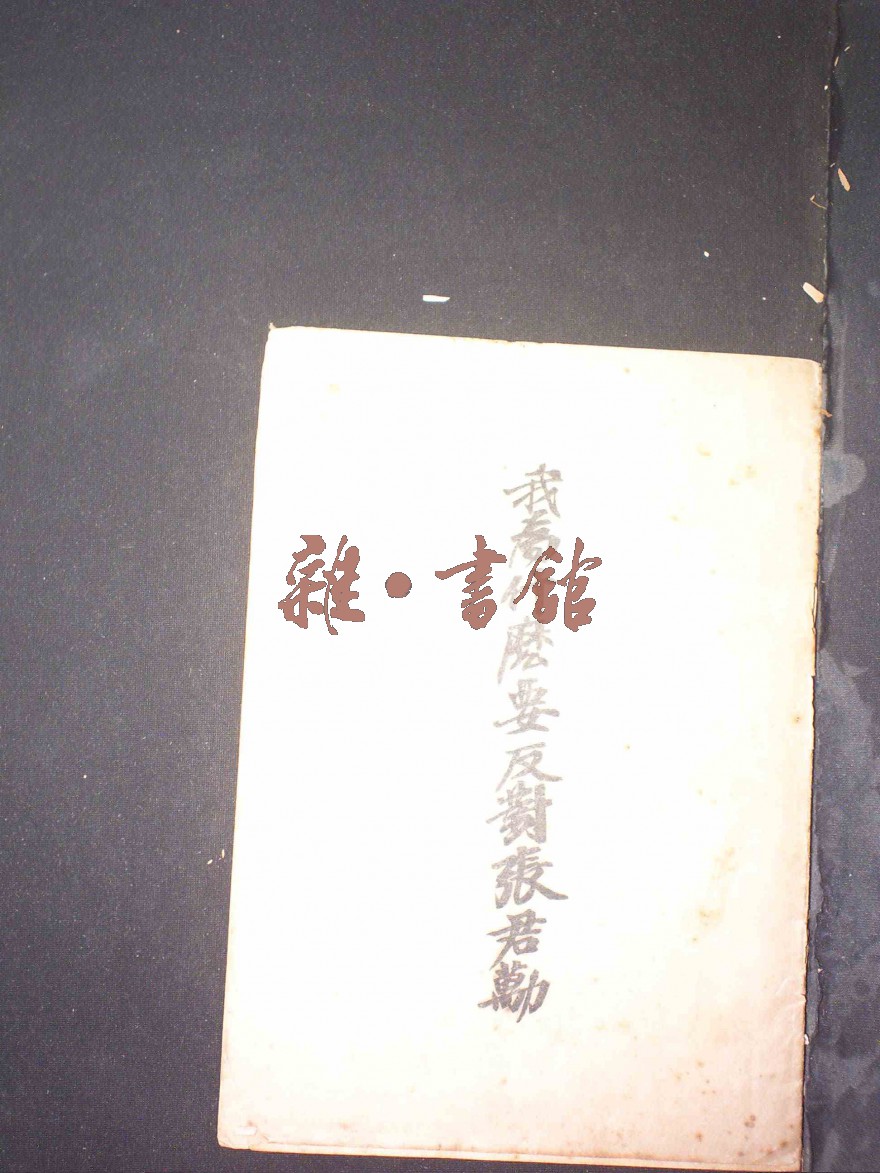 我為什麼要反對張君勱
雜·書館